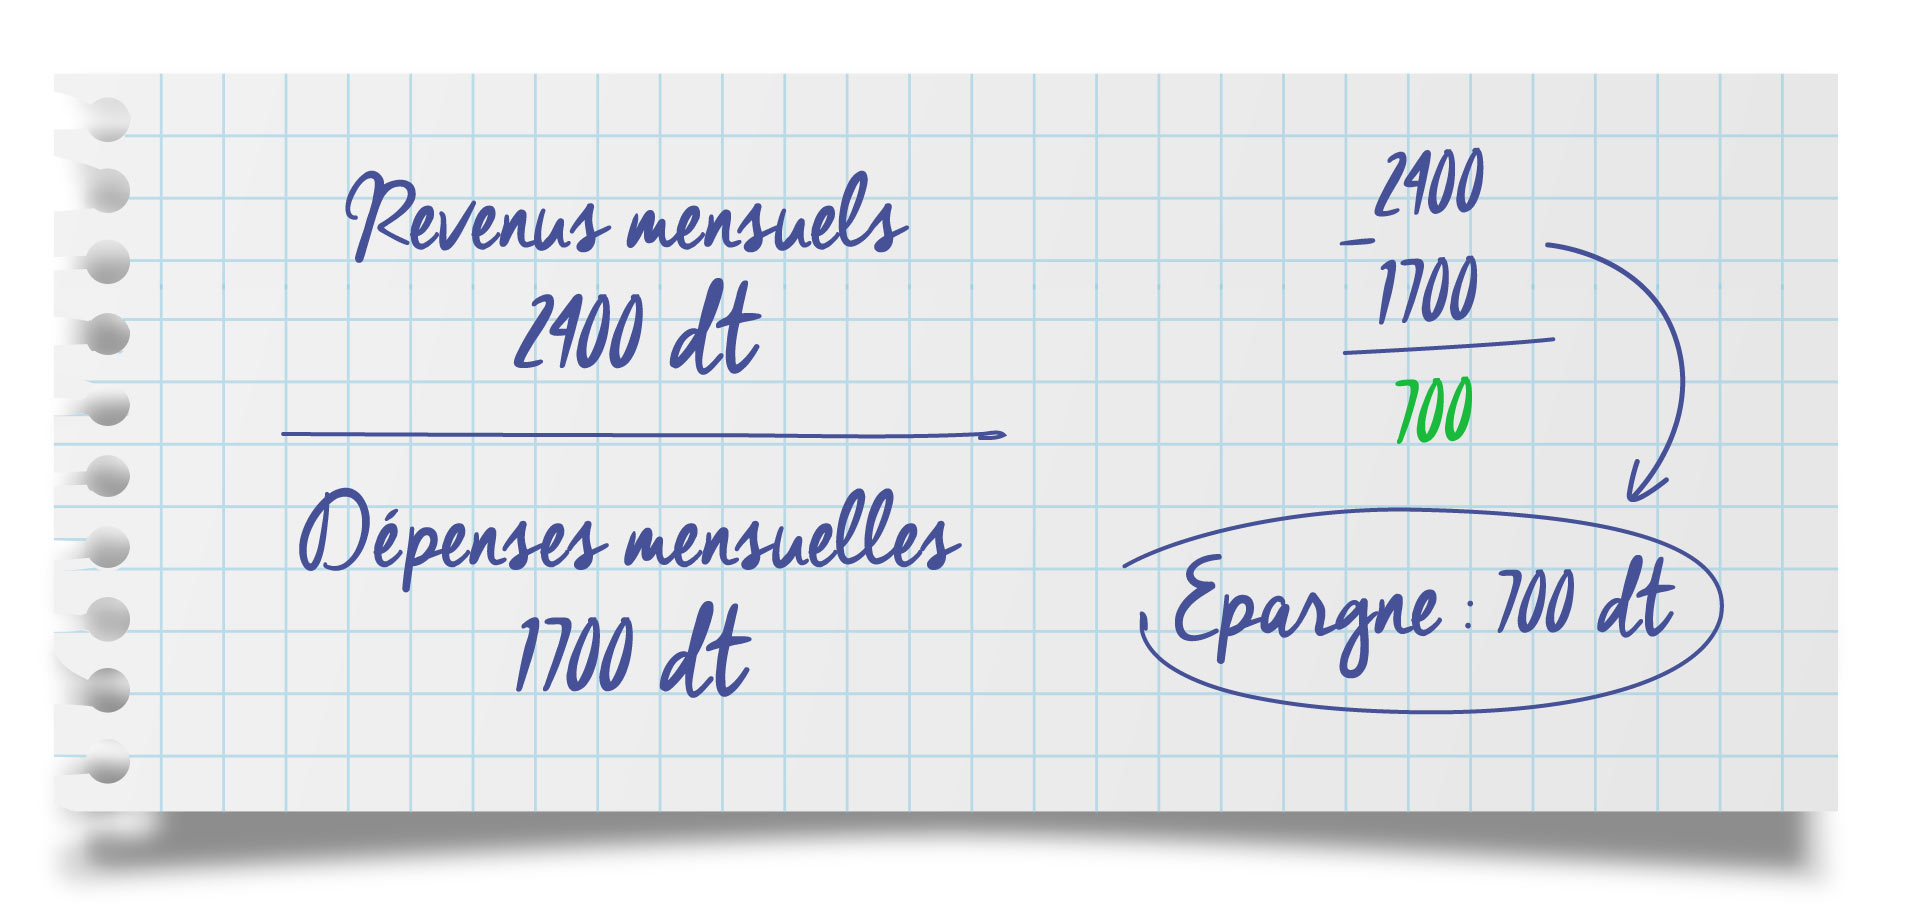 Revenus mensuels
2400 dt
Dépenses mensuelles
1700 dt
2400
–
1700
700
Epargne : 700 dt